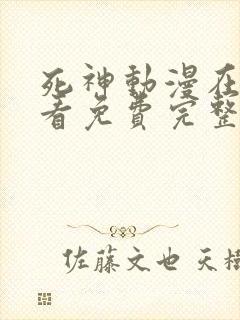 死神動漫在
看免費完整
佐藤文也 天樹